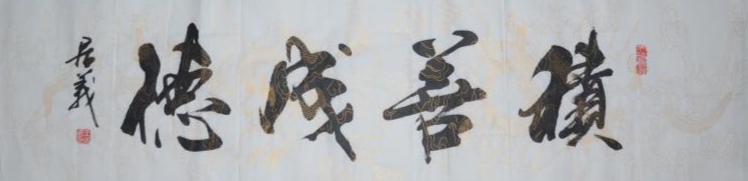 積善成德
居義